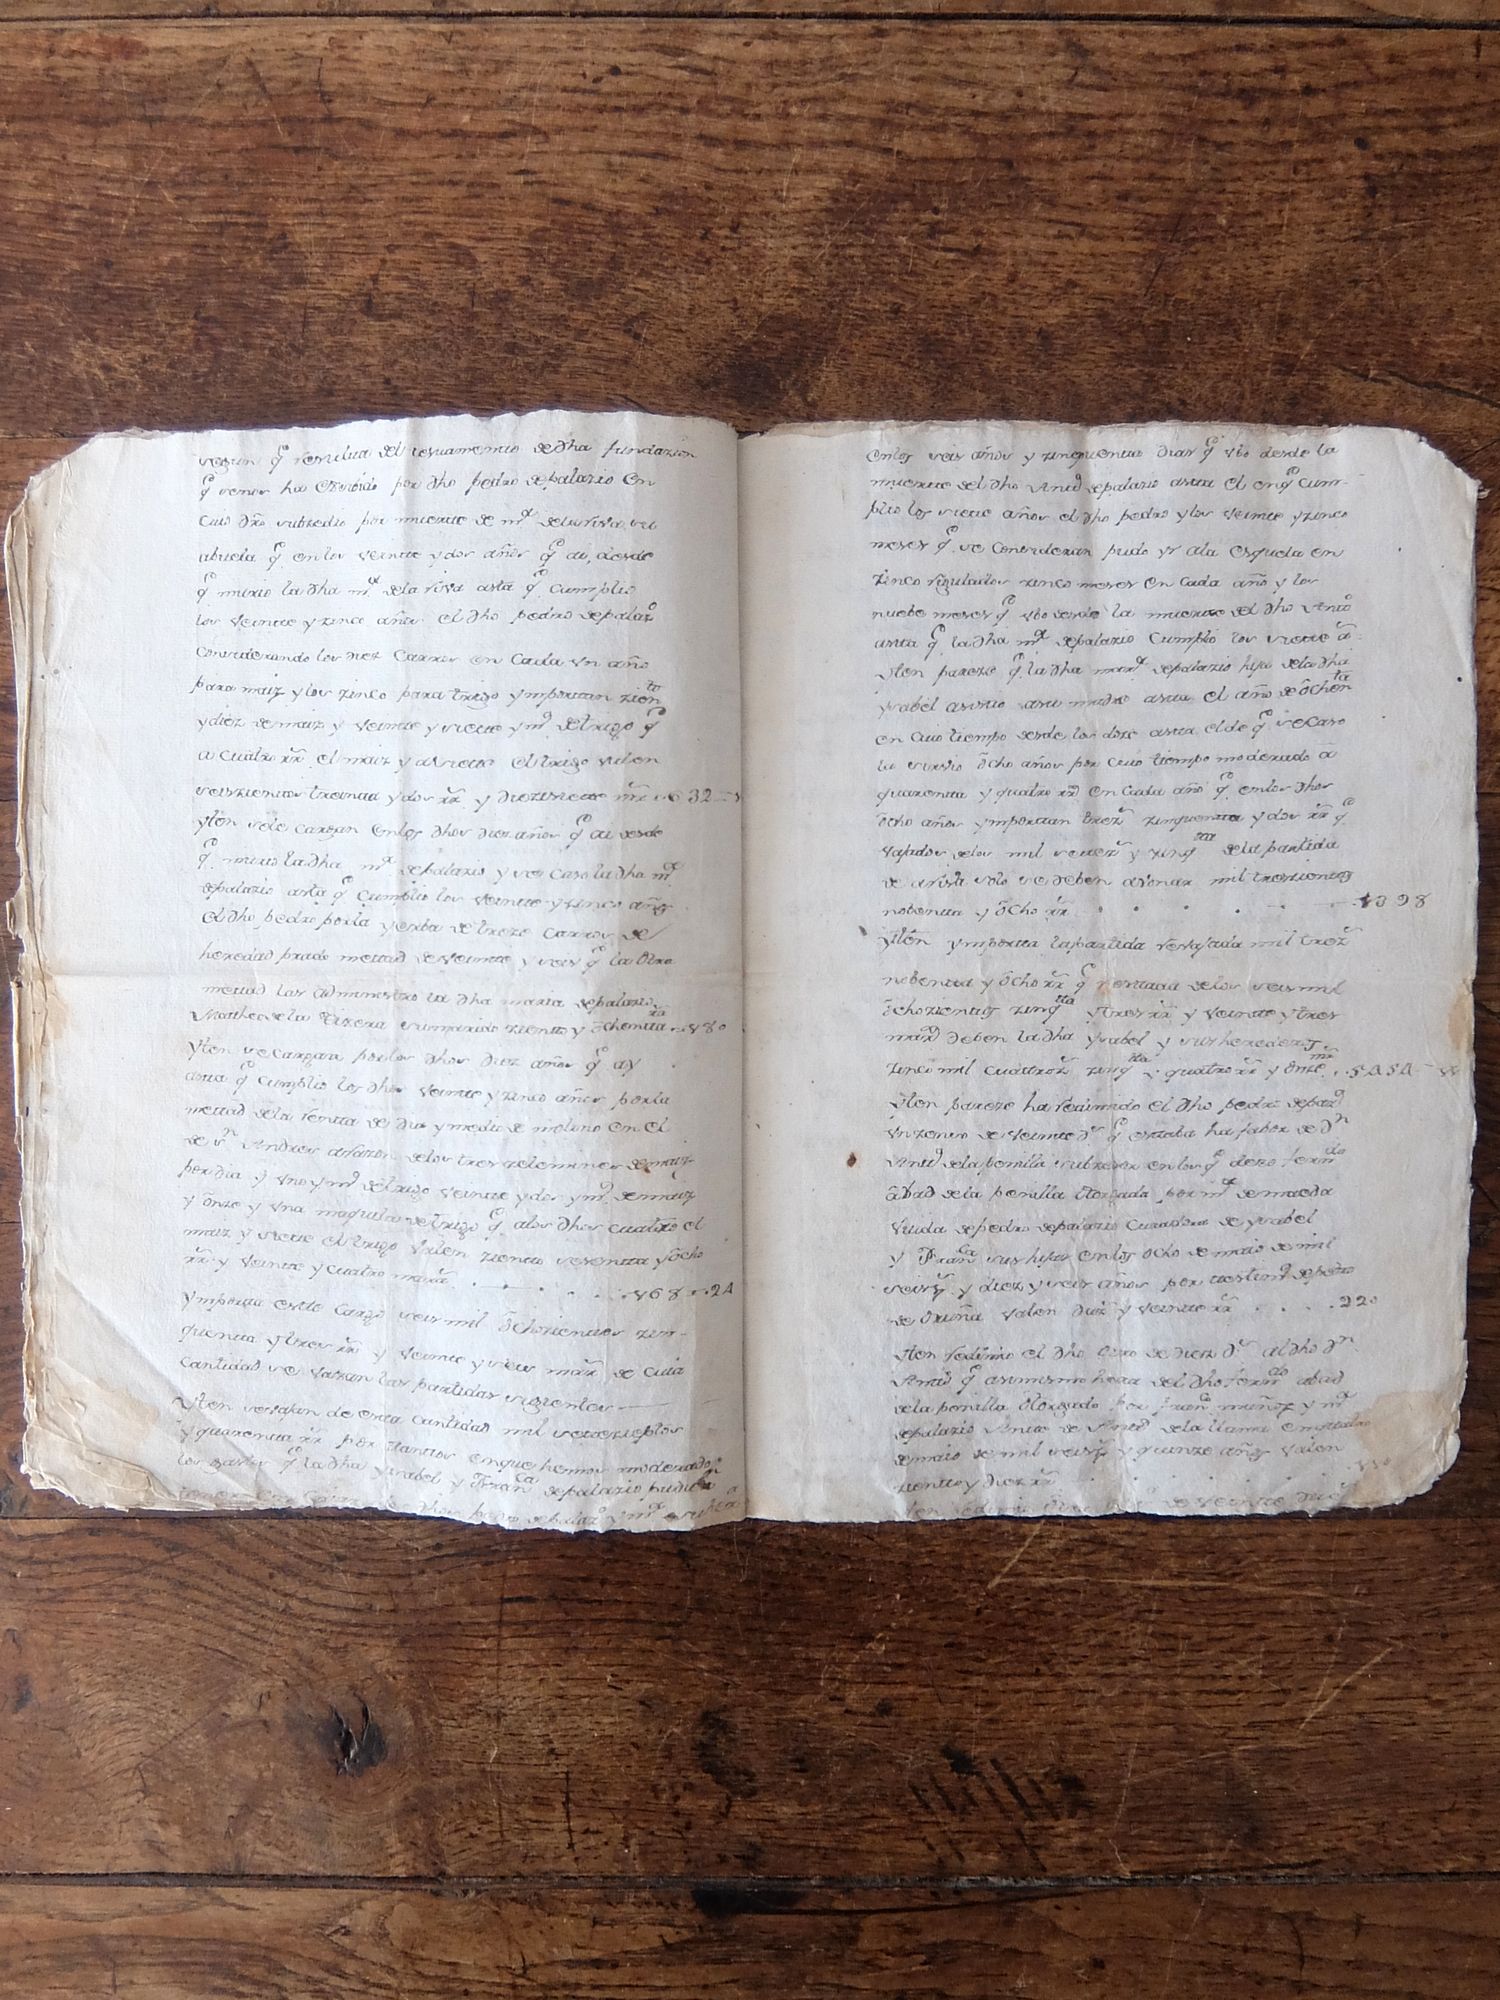 segun q̃ resulta del testamento de dha fundazion
q̃ senos ha esivido por dho pedro depalazio en
cuio dro̅ subzedio por muerte de mª dela riva su
abuela q̃ en los veinte y dos años q̃ ai, desde
q̃ murio la dha mª dela riva asta q̃ cumplio
los veinte y zinco años el dho pedro depalazº
considerando los diez carros en cada un año
para maiz y los zinco para trigo ymportan zien
y diez de maiz y veinte y siete y mº de trigo q̃
a cuatro rr̃ el maiz y a siete el trigo valen
seiszientos treinta y dos rr̃ y diezisiete mr̃ 632
yten sele cargan enlos dhos diez años q̃ ai desde
q̃ murio la dha mª depalazio y se caso la dha mª
depalazio asta q̃ cumplio los veinte y zinco años
el dho pedro por la yerba de treze carros de
heredad prado mettad de veinte y seis q̃ la otra
mettad los administro la dha maria depalazio
Mattheo de la Tixera sumarido ziento y ochenta rr̃ 180
yten se cargan por los dhos diez años q̃ ay
asta q̃ cumplio los dhos veinte y zinco años por la
mettad de la renta de dia y medio de molino en el
de sn Andres a razon de los tres zelemines de maiz
por dia y uno y mº de trigo veinte y dos y mº de maiz
y onze y una maquila de trigo q̃ a los dhos cuatro el
maiz y siete el trigo valen ziento sesenta y ocho
rr̃ y veinte y cuatro mar̃ 168 24
ymporta este cargo seis mil ochozientos zin-
quenta y tres rr̃ y veinte y siete mar̃ de cuia
cantidad se vajan las partidas siguientes
yten se vajan de esta cantidad mil setezientos
y quarenta rr̃ por tantos enque hemos moderado
los gastos q̃ la dha ysabel y Franca depalazio
dhos pedro depalazº y mª
enlos seis años y zinquenta dias q̃ ubo desde la
muerte del dho Antº depalazio asta el en q̃ cum-
plio los siete años el dho pedro y los veinte y zinco
meses q̃ se consideran pudo yr a la esquela en
zinco rigulados zinco meses en cada año y los
nuebe meses q̃ ubo desde la muerte del dho Antº
asta q̃ la dha mª depalazio cumplio los siete a-
yten pareze q̃ la dha marª depalazio hija de la dha
ysabel asistio asu madre asta el año de ochenta
en cuio tiempo desde los doze asta el de q̃ se caso
la sirvio ocho años por cuio tiempo moderado a
quarenta y quatro rr̃ en cada año q̃ enlos dhos
ocho años ymportan trezs zinquenta y dos rr̃ q̃
vajados delos mil setezs y zinqta de la partida
de arriva solo se deben abonar mil trescientos
nobenta y ocho rr̃ 1398
yten ymporta la partida revajada mil trezs
nobenta y ocho rr̃ q̃ restada de los seis mil
ochozientos zinqta y tres rr̃ y veinte y tres
mard deben la dha ysabel y sus herederos
zinco mil cuatrozs zinqta y quatro rr̃ y onze mr̃ 5454
yten pareze ha redimido el dho pedro depazº
un zenso de veinte ds q̃ estaba ha fabor de dn
Antº de la penilla subzesor en los q̃ dexo ferndo
abad de la penilla otorgada por mª de maeda
viuda de pedro depalazio curadora de ysabel
y Franca sus hijas en los ocho de maio de mil
seiszs y diez y seis años por testimº de pedro
de Oruña valen duzs y veinte rr̃ 220
yten redimio el dho otro de diez ds al dho dn
Antº q̃ asimismo hera del dho ferndo abad
de la penilla otorgado por Juan muñoz y mª
depalazio ante de Antº de la llama en quatro
de maio de mil seiszs y quinze años valen
ziento y diez rr̃ 110
yten redimio otro de veinte